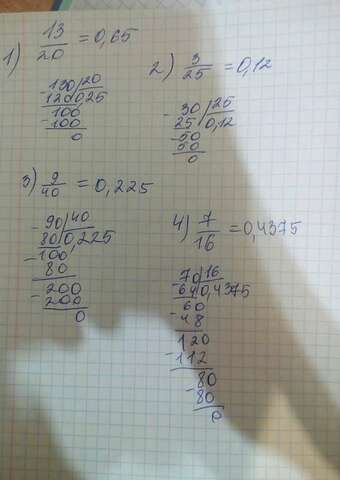 1) 13/20 = 0,65
- 130 | 20
120 0,25
100
- 100
0
2) 3/25 = 0,12
- 30 | 25
25 0,12
- 50
50
0
3) 9/40 = 0,225
- 90 | 40
80 0,225
- 100
80
- 200
200
0
4) 7/16 = 0,4375
- 70 | 16
64 0,4375
60
- 48
120
- 112
80
- 80
0